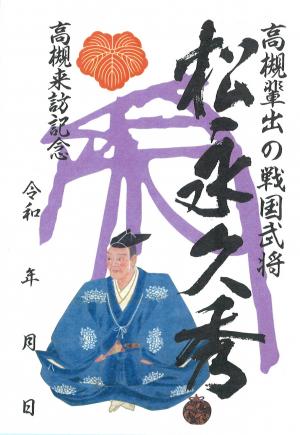 高槻輩出の戦国武将
松永久秀
高槻来訪記念
令和 年 月 日